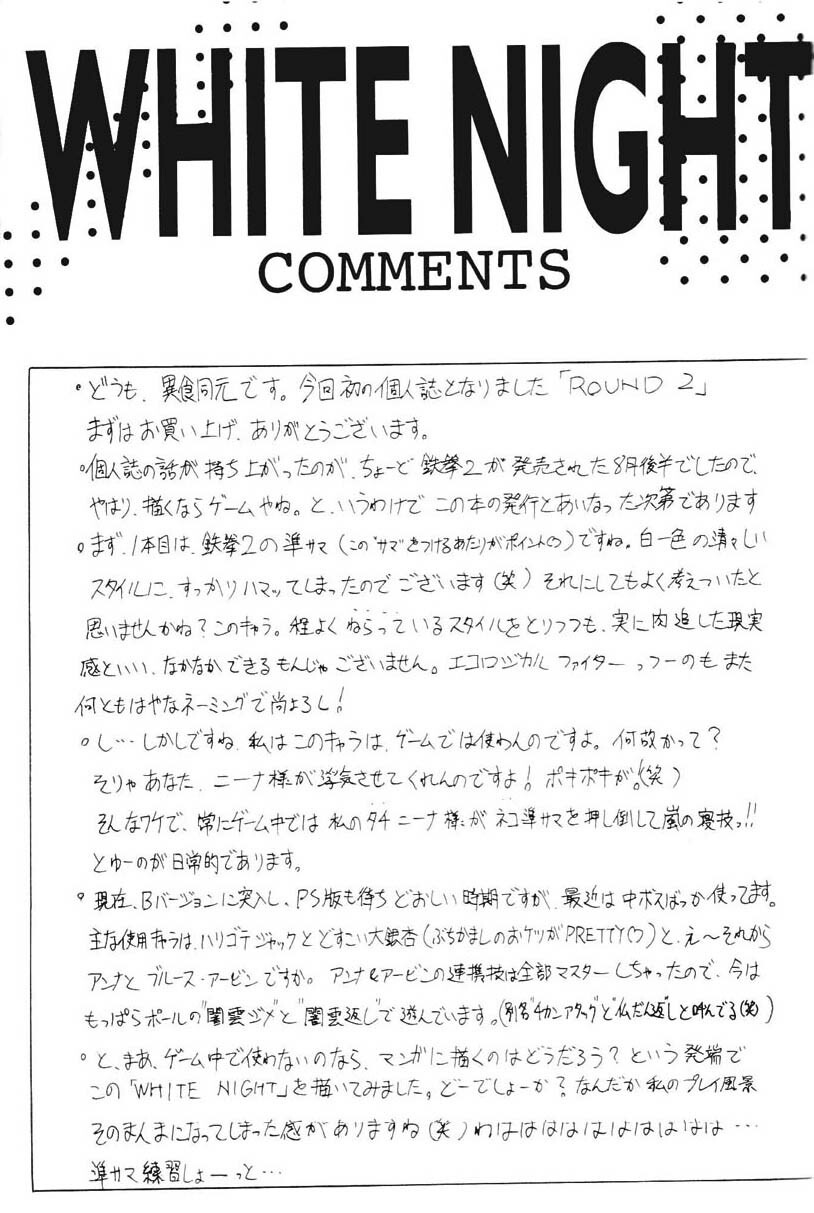 WHITE NIGHT
COMMENTS
•どうも、異食同元です。今回初の個人誌となりました「ROUND 2」
まずはお買い上げ、ありがとうございます。
•個人誌の話が持ち上がったのが、ちょーど鉄拳2が発売された8月後半でしたので、
やはり、描くならゲームやね。と、いうわけでこの本の発行とあいなった次第であります
•まず、1本目は、鉄拳2の準サマ(この"サマ"をつけるあたりがポイント♡)ですね。白一色の清々しい
スタイルに、すっかりハマッてしまったのでございます(笑)それにしてもよく考えついたと
思いませんかね?このキャラ。程よくねらっているスタイルをとりつつも、実に肉迫した現実
感といい、なかなかできるもんじゃございません。エコロジカルファイターっつーのもまた
何ともはやなネーミングで尚よろし!
•し…しかしですね、私はこのキャラは、ゲームでは使わんのですよ。何故かって?
そりゃあなた、ニーナ様が浮気させてくれんのですよ!ポキポキが。(笑)
そんなワケで、常にゲーム中では私のタチニーナ様がネコ準サマを押し倒して嵐の寝技っ!!
とゆーのが日常的であります。
•現在、Bバージョンに突入し、PS版も待ちどおしい時期ですが、最近は中ボスばっか使ってます。
主な使用キャラは、ハリゴテジャックとどすこい大銀杏(ぶちかましのおケツがPRETTY♡)と、え〜それから
アンナとブルース・アービンですか。アンナ&アービンの連携技は全部マスターしちゃったので、今は
もっぱらポールの"闇雲ジメ"と"闇雲返し"で遊んでいます。(別名"チカンアタック"と"仏だん返し"と呼んでる(笑)
•と、まあ、ゲーム中で使わないのなら、マンガに描くのはどうだろう?という発端で
この「WHITE NIGHT」を描いてみました。どーでしょーか?なんだか私のプレイ風景
そのまんまになってしまった感がありますね(笑)わはははははははははは…
準サマ練習しょーっと…